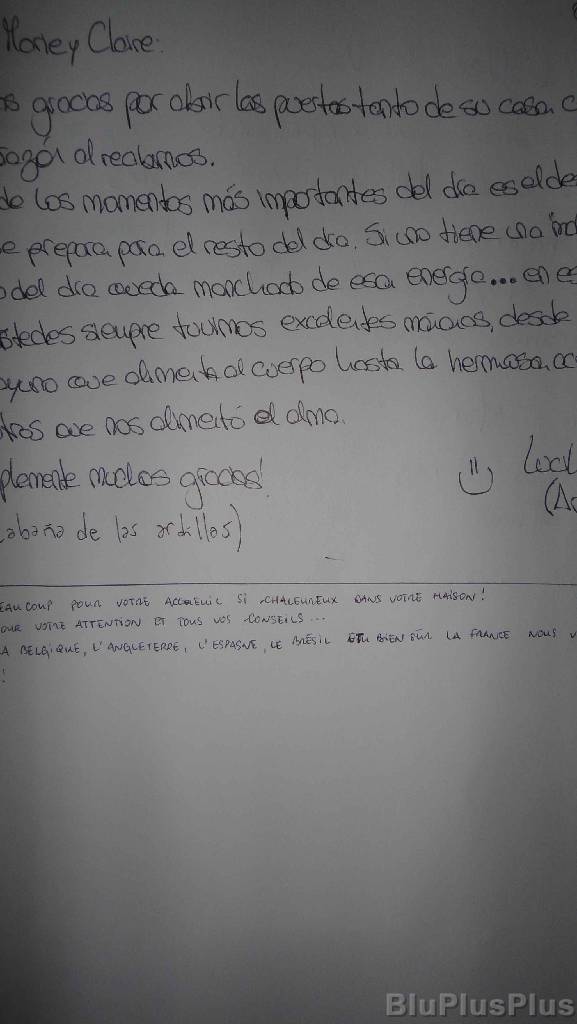 Honey Claire:
s gracias por abrir las puertas tanto de su casa c
al recibirnos.
de los momentos más importantes del día es el de
e prepara para el resto del día. Si uno tiene una
o del día queda manchado de esa energía... en es
stedes siempre tuvimos excelentes inicios, desde
yuno que alimenta al cuerpo hasta la hermosa co
tros que nos alimentó el alma.
plemente muchas gracias!
cabaña de las ardillas)
EAUCOUP POUR VOTRE ACCEUIL SI CHALEUREUX DANS VOTRE MAISON!
OUR VOTRE ATTENTION ET TOUS VOS CONSEILS...
A BELGIQUE, L'ANGLETERRE, L'ESPAGNE, LE BRÉSIL ET BIEN SÛR LA FRANCE NOUS V
!
BluPlusPlus